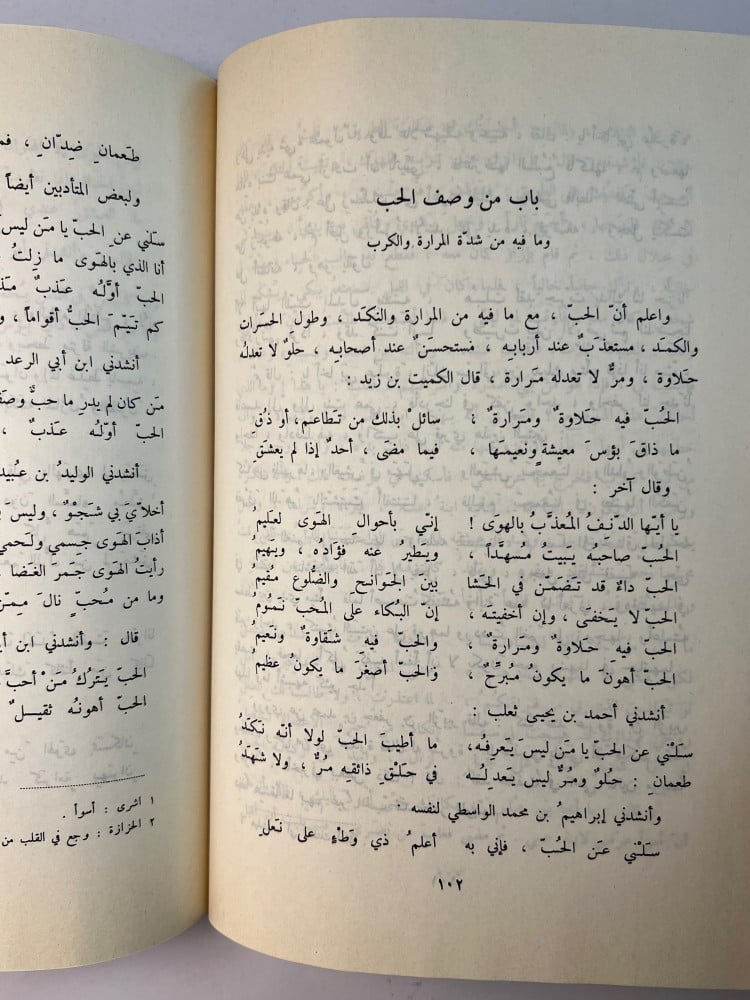 باب من وصف الحب
وما فيه من شدّة المرارة والكرب
واعلم أنّ الحبّ ، مع ما فيه من المرارة والنكَد ، وطولِ الحسَرات
والكمَد ، مستعذَبٌ عند أربابِه ، مستحسَنٌ عند أصحابِه ، حلوٌ لا تعدلُه
حَلاوة ، ومرٌّ لا تعدله مَرارة ، قال الكميت بن زيد :
الحُبّ فيه حَلاوَةٌ ومَرارَةٌ ، سائلْ بذلك من تَطاعَم، أو ذُقِ
ما ذاقَ بؤسَ معيشةٍ ونعيمَها ، فيما مضَى ، أحدٌ إذا لم يعشَقِ
وقال آخر :
يا أيّها الدّنِفُ المُعذَّبُ بالهوَى ! إنّي بأحوالِ الهَوى لعَليمُ
الحُبّ صاحبُه يَبيتُ مُسهَّداً ، ويَطيرُ عنه فؤادُه ، ويَهيمُ
الحبّ داءٌ قد تَضَمّنَ في الحَشا بينَ الجَوانحِ والضّلوعِ مُقيمُ
الحبّ لا يَخفَى ، وإن أخفيتَه ، إنّ البُكاء علَى المُحبّ نَمُومُ
الحبّ فيه حَلاوةٌ ومَرارةٌ ، والحبّ فيه شَقاوةٌ ونَعيمُ
الحبّ أهونَ ما يكونُ مُبرِّحٌ ، وَالحبّ أصغرَ ما يكونُ عظيمُ
أنشدني أحمد بن يحيى ثعلب :
سَلْني عن الحبّ يا مَن ليسَ يَعرِفُه، ما أطيبَ الحبّ لولا أنّه نَكَدُ
طعمانِ : حُلوٌ ومُرٌّ ليس يَعدِلُه في حَلْقِ ذائقِه مُرٌّ ، ولا شَهَدُ
وأنشدني إبراهيمُ بن محمد الواسطي لنفسه :
سَلْني عَن الحُبّ ، فإني به أعلمُ ذي وَطْءٍ على نَعلِ
١٠٢
طَعمانِ ضِدّانِ ،
ولبعض المتأدبين أيضاً
سَلني عن الحبّ يا مَن ليسَ
أنا الذي بالهَوى ما زِلتُ
الحبّ أوّلُه عَذبٌ
كم تَيّمَ الحبُّ أقواماً ،
أنشدني ابن أبي الرعد
مَن كان لم يدرِ ما حبٌّ
الحبّ أوّلُه عَذبٌ ،
أنشدني الوليدُ بن عُبيد
أخلاّيَ بي شَجْوٌ ، وليسَ
أذابَ الهَوى جسمي ولَحمي
رأيتُ الهَوى جَمرَ الغَضا
وما من مُحبٍّ نالَ مِمّن
قال : وأنشدني ابن
الحبّ يَترُكُ مَنْ أحبّ
الحبّ أهونُه ثَقيلٌ
١ اشرى : أسوأ .
٢ الحزازة : وجع في القلب من